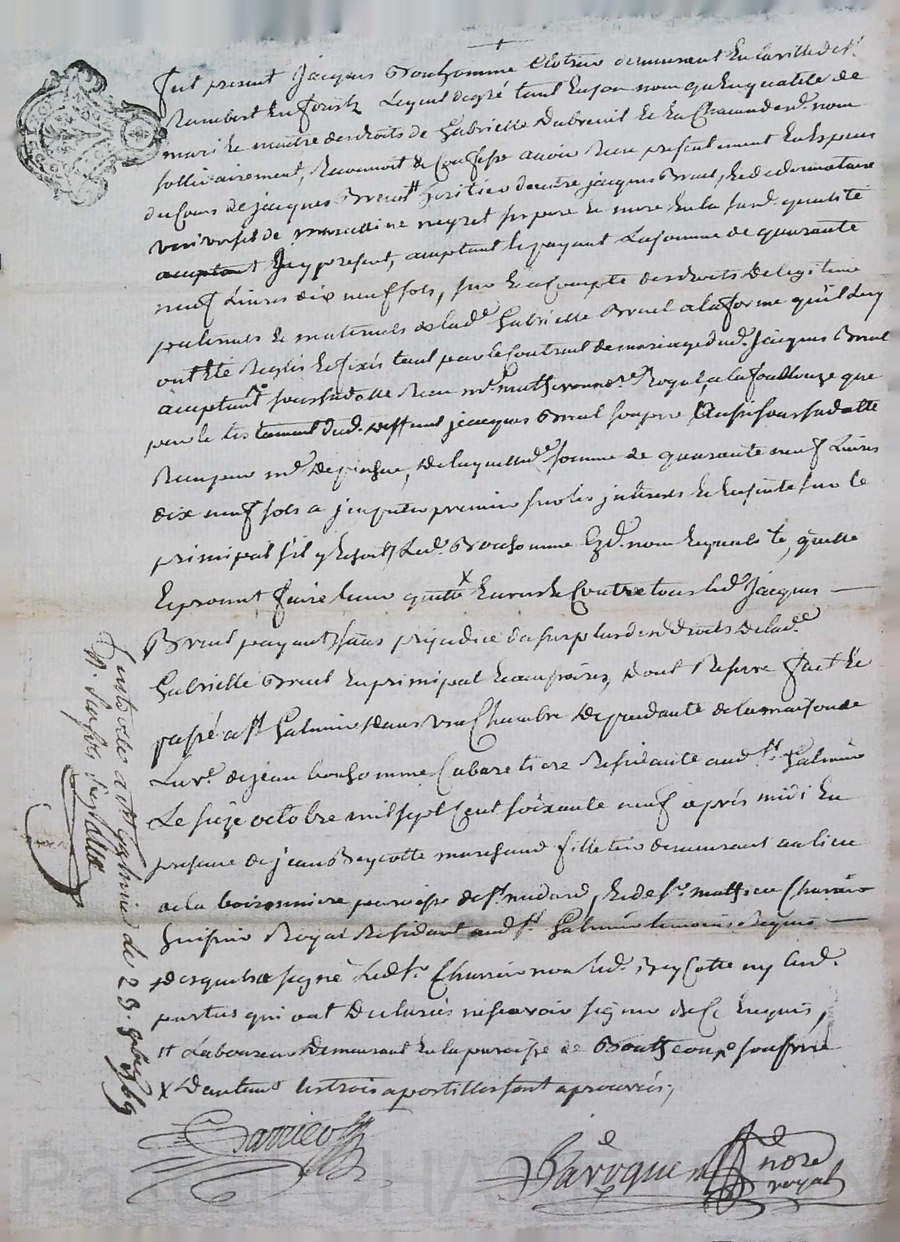 fut present Jacques Bonhomme clotrier demeurant en la ville de St
Rambert En forest Lequel de gré tant En son nom qu'en qualité de
mari Et maitre des droits de Gabrielle Breuil Et en Chacun desd. nom
sollidairement, Reconnoit & Confesse avoir Reçu presentement En Especes
du Cours de jacques Breuil tt heritier de autre jacques Breuil, Et de donnataire
universel de negret ses pere Et mere En lad. qualité
acceptant Icy present, acceptant Et payant La somme de quarante
neuf Livres dix neuf sols, sur Et a Compte des droits de legitime
paternels Et maternels de lade Gabrielle Breuil a la forme qu'ils Luy
ont Eté Reglés Et fixés tant par le Contrat de mariage dud. Jacques Breuil
acceptant sous sa datte Reçu me Royal a la fouillouze que
par le testament dud. deffunt jacques Breuil son pere Aussi sous sa datte
Reçu par me de laquelle de somme de quarante neuf Livres
dix neuf sols a jmputer premier sur les jnterets Et Ensuite sur le
principal s'il y Echoit, Led. Bonhomme Ezd. nom Et qualité, quitte
Et promet faire tenir quitte x Envers Et Contre tous led. Jacques
Breuil payant, sans prejudice du surplus des droits de lade
Gabrielle Breuil En principal Et accessoires, dont Reserve fait Et
passé a St Galmier dans une Chambre dependante de la maison de
La ve de jean bonhomme Cabaretiere Residante aud. St Galmier
Le seize octobre mil sept Cent soixante neuf après midi En
presence de jean Beycotte marchand filletier demeurant au lieu
de la boissonniere paroisse de St medard, Et de sr mathieu Charrier
huissier Royal Residant aud. St Galmier temoins Requis
desquels a signé led. sr Charrier non led. Beycotte ny lesd.
parties qui ont Declarés ne sçavoir signer de Ce Enquis,
tt Laboureur demeurant En la paroisse de
x dautant les trois apostilles sont aprouvées,
Controllé a St Galmier le 23. 8bre 1769
R. sols
Charrier
Laroque nore
royal